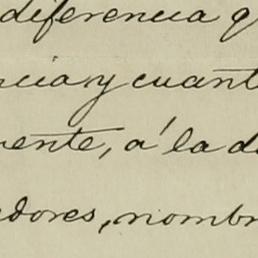 diferencia q
ncia y cuant
mente, á la d
edores, nombr